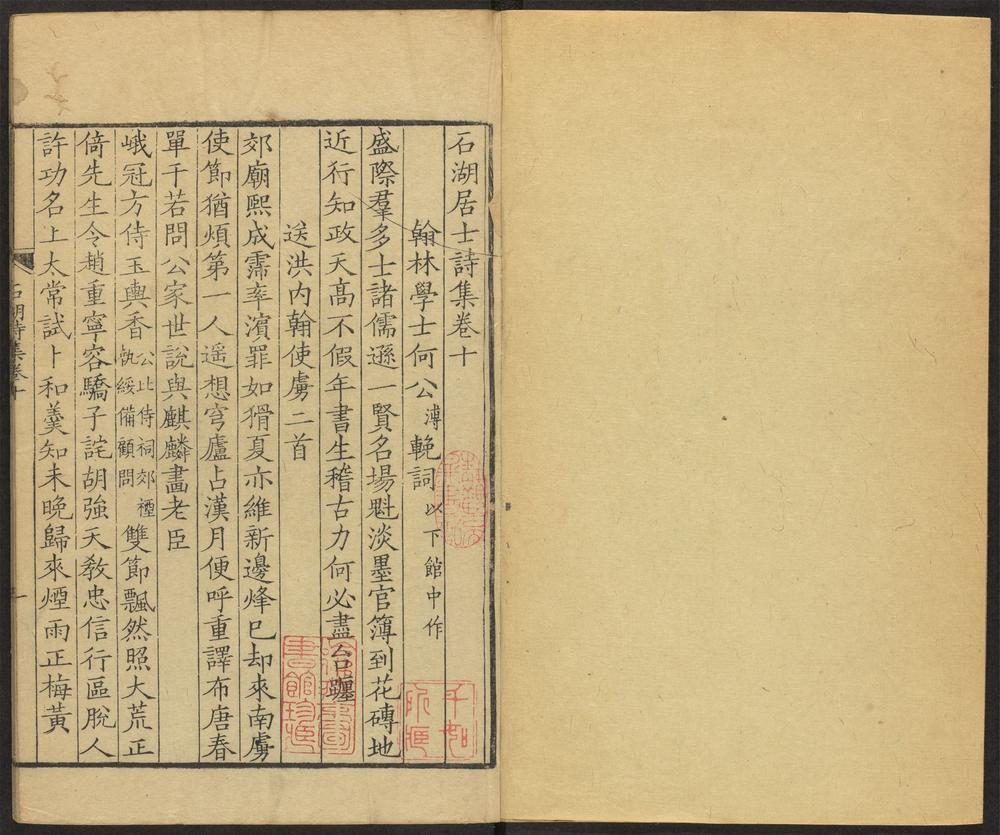 石湖居士詩集卷十
翰林學士何公溥輓詞以下館中作
盛際羣多士諸儒遜一賢名場魁淡墨官簿到花磚地
近行知政天高不假年書生稽古力何必盡台躔
送洪内翰使虜二首
郊廟熙成霈率濱罪如猾夏亦維新邊烽已却來南虜
使節猶煩第一人遥想穹廬占漢月便呼重譯布唐春
單于若問公家世說與麒麟畫老臣
峨冠方侍玉輿香公比侍祠郊禋執綏備顧問雙節飄然照大荒正
倚先生令趙重寧容驕子詫胡強天敎忠信行區脫人
許功名上太常試卜和羹知未晚歸來煙雨正梅黄
石湖詩集卷十
一